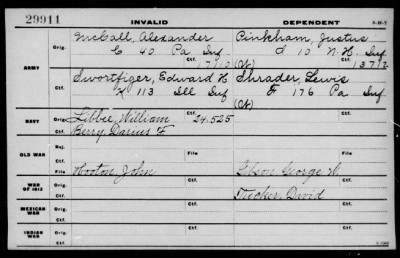 29911 INVALID DEPENDENT
ARMY
Orig. McCall, Alexander Pinkham, Justus
C 40 Pa Inf D 10 N.H. Inf
Ctf. 17110 (N) Ctf. 1371
Orig. Swortfiger, Edward H Shrader, Lewis
K 113 Ill Inf F 176 Pa Inf
Ctf. (N) Ctf.
NAVY
Orig. Libbie, William 24.525
Ctf. Berry, Darius F
OLD WAR
Rej. File Ctf.
File Hooton, John File
WAR OF 1812
Orig. Ctf. Gibson George W Ctf.
Tucker, David
MEXICAN WAR
Orig. Ctf. Ctf.
INDIAN WAR
Orig. Ctf. Ctf.